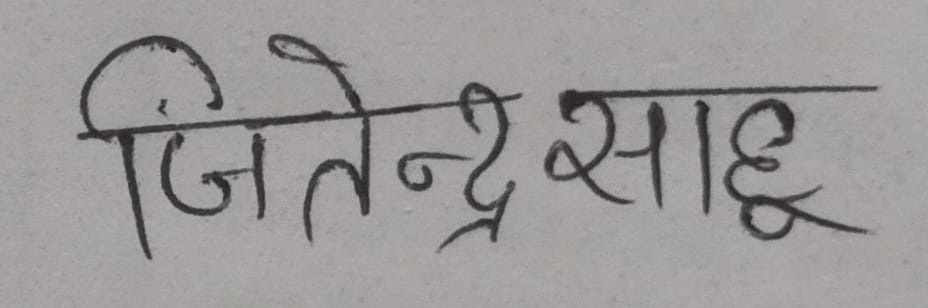 जितेन्द्र साहू